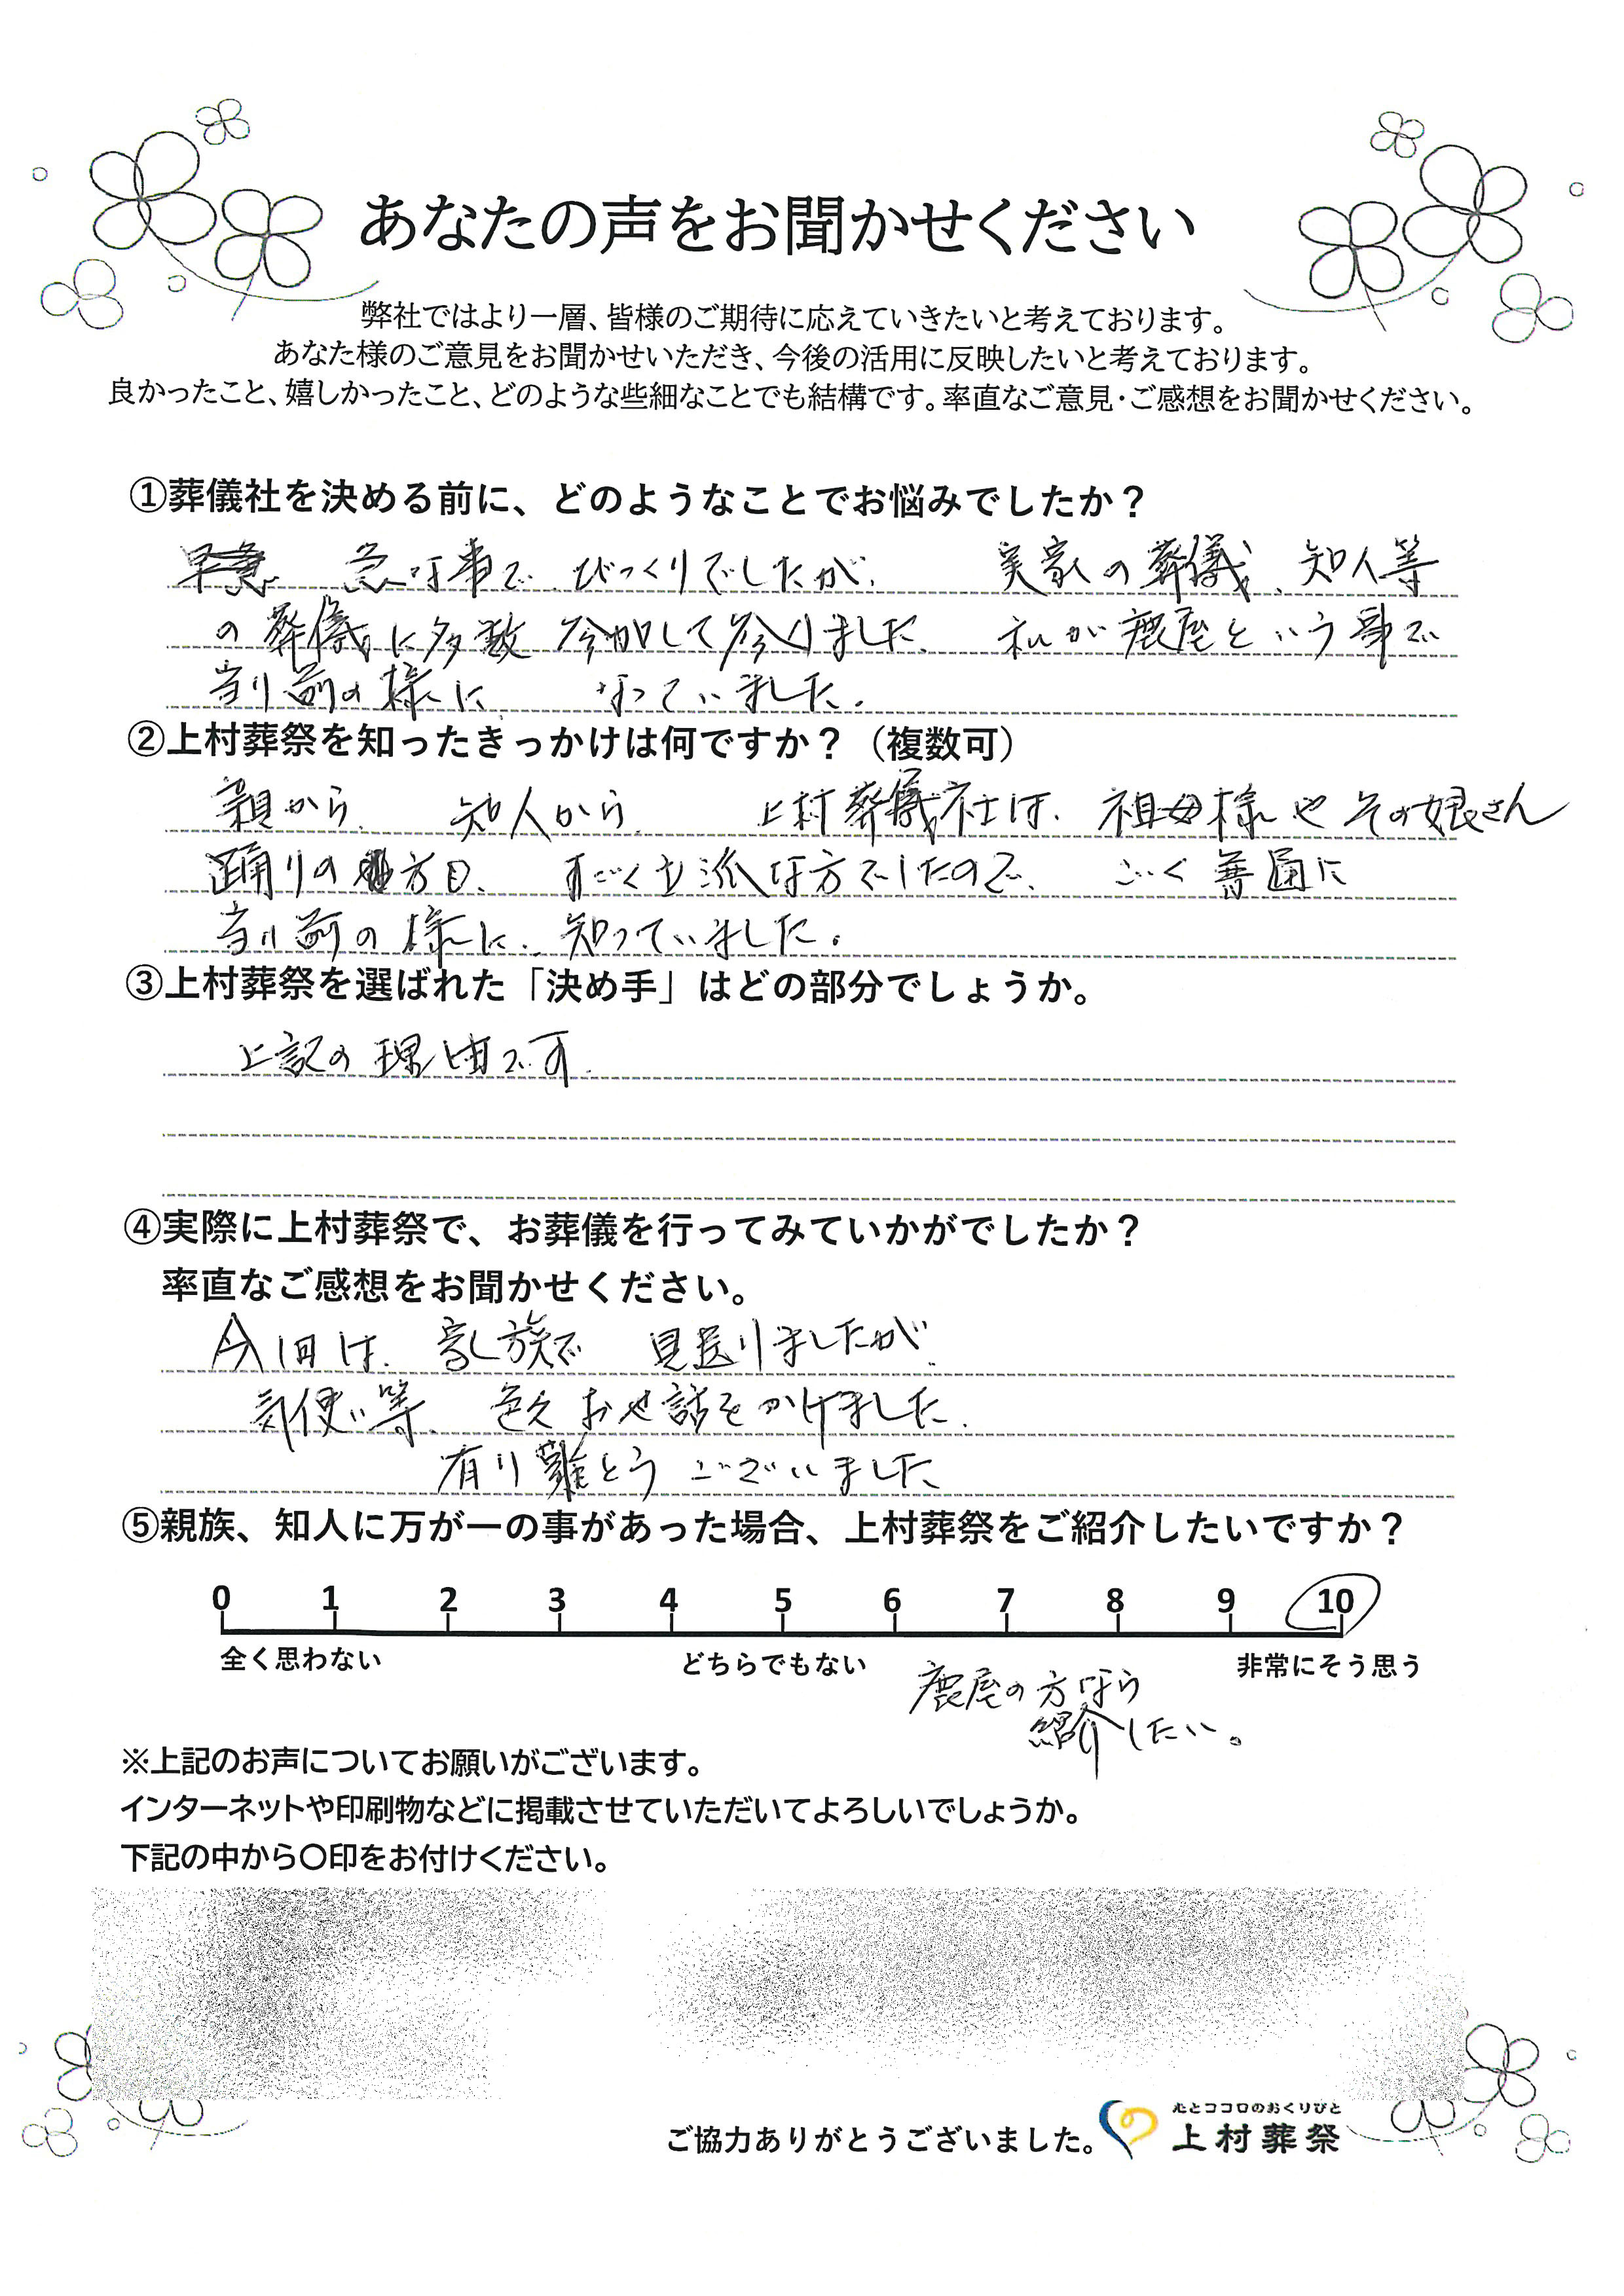 あなたの声をお聞かせください
弊社ではより一層、皆様のご期待に応えていきたいと考えております。
あなた様のご意見をお聞かせいただき、今後の活用に反映したいと考えております。
良かったこと、嬉しかったこと、どのような些細なことでも結構です。率直なご意見・ご感想をお聞かせください。
①葬儀社を決める前に、どのようなことでお悩みでしたか？
急な事で、びっくりでしたが、 実家の葬儀、知人等
の葬儀に多数 参加して参りました。 私が鹿屋という事で
当り前の様に なっていました。
②上村葬祭を知ったきっかけは何ですか？（複数可）
親から、 知人から、 上村葬儀社は、祖母様や その娘さん
踊りの 方も、 すごく立派な方でしたので、 ごく普通に
当り前の様に、知っていました。
③上村葬祭を選ばれた「決め手」はどの部分でしょうか。
上記の理由です。
④実際に上村葬祭で、お葬儀を行ってみていかがでしたか？
率直なご感想をお聞かせください。
今回は、家族で 見送りましたが、
気使い等、 色々お世話をかけました。
有り難とう ございました
⑤親族、知人に万が一の事があった場合、上村葬祭をご紹介したいですか？
0 1 2 3 4 5 6 7 8 9 10
全く思わない どちらでもない 非常にそう思う
鹿屋の方なら
紹介したい。
※上記のお声についてお願いがございます。
インターネットや印刷物などに掲載させていただいてよろしいでしょうか。
下記の中から〇印をお付けください。
心とココロのおくりびと
ご協力ありがとうございました。 上村葬祭